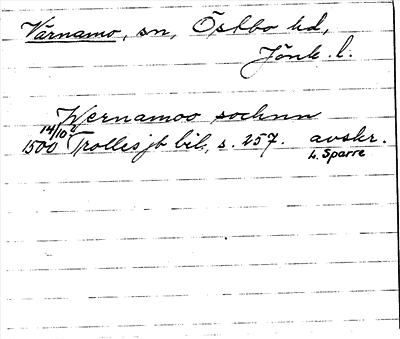 Värnamo, sn, Östbo hd,
Jönk. l.
Wernamoo sochnn
14/10
1500 Trollesjb bil, s. 257. avskr.
L. Sparre